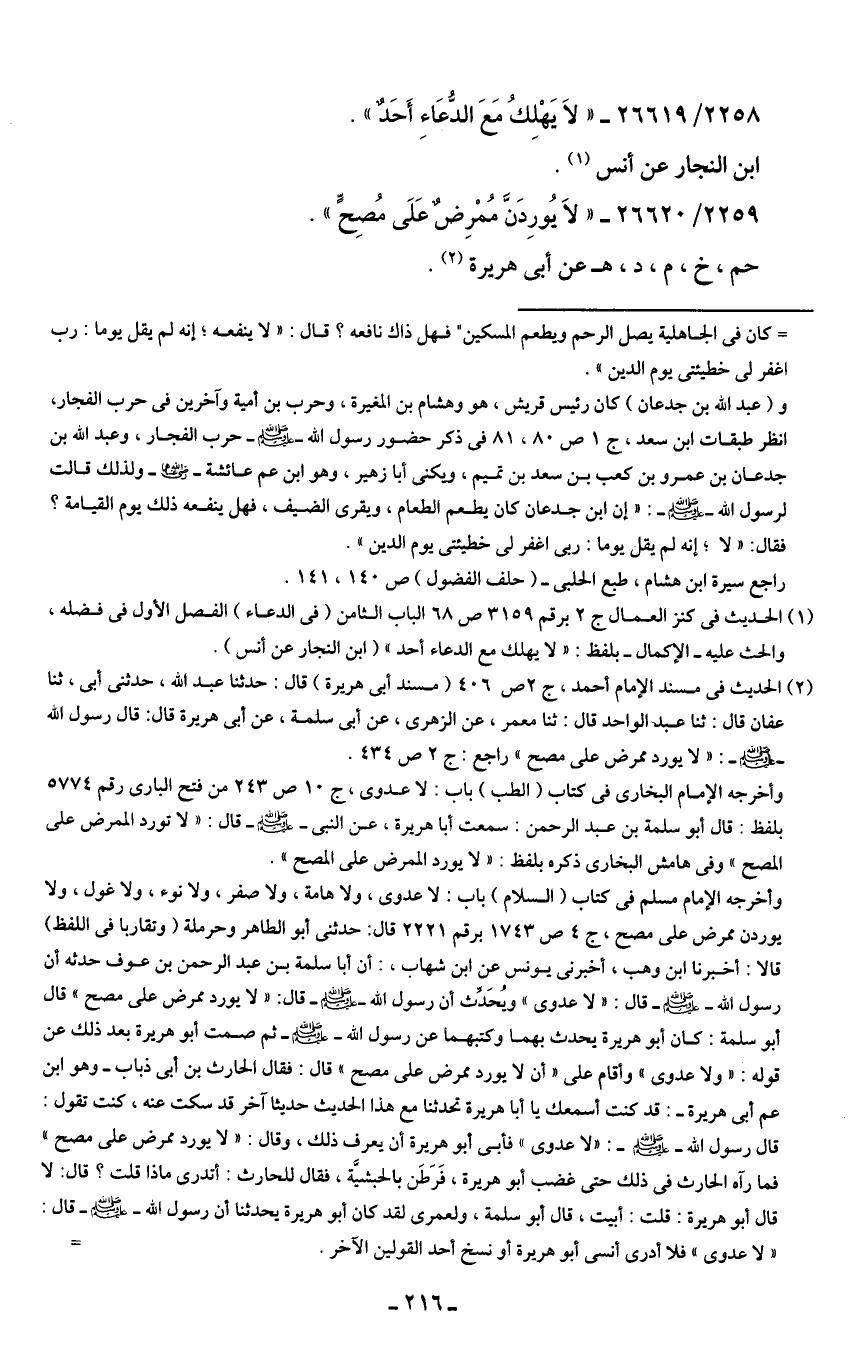 ٢٢٥٨/ ٢٦٦١٩ ـ « لاَ يَهْلِكُ مَعَ الدُّعَاءِ أَحَدٌ » .
ابن النجار عن أنس (١) .
٢٢٥٩/ ٢٦٦٢٠ ـ « لاَ يُورِدَنَّ مُمْرِضٌ عَلَى مُصِحٍّ » .
حم ، خ ، م ، د ، هـ عن أبى هريرة (٢) .
= كان فى الجاهلية يصل الرحم ويطعم المسكين" فهل ذاك نافعه ؟ قال : « لا ينفعه ؛ إنه لم يقل يوما : رب
اغفر لى خطيئتى يوم الدين » .
و ( عبد الله بن جدعان ) كان رئيس قريش ، هو وهشام بن المغيرة ، وحرب بن أمية وآخرين فى حرب الفجار،
انظر طبقات ابن سعد ، ج ١ ص ٨٠ ، ٨١ فى ذكر حضور رسول الله ـ ﷺ ـ حرب الفجار ، وعبد الله بن
جدعان بن عمرو بن كعب بن سعد بن تميم ، ويكنى أبا زهير ، وهو ابن عم عائشة ـ رضي الله عنها ـ ولذلك قالت
لرسول الله ـ ﷺ ـ : « إن ابن جدعان كان يطعم الطعام ، ويقرى الضيف ، فهل ينفعه ذلك يوم القيامة ؟
فقال: « لا ؛ إنه لم يقل يوما : ربى اغفر لى خطيئتى يوم الدين » .
راجع سيرة ابن هشام ، طبع الحلبى ـ ( حلف الفضول ) ص ١٤٠ ، ١٤١ .
(١) الحديث فى كنز العمال ج ٢ برقم ٣١٥٩ ص ٦٨ الباب الثامن ( فى الدعاء ) الفصل الأول فى فضله ،
والحث عليه ـ الإكمال ـ بلفظ : « لا يهلك مع الدعاء أحد » ( ابن النجار عن أنس ) .
(٢) الحديث فى مسند الإمام أحمد ، ج ٢ ص ٤٠٦ ( مسند أبى هريرة ) قال : حدثنا عبد الله ، حدثنى أبى ، ثنا
عفان قال : ثنا عبد الواحد قال : ثنا معمر ، عن الزهرى ، عن أبى سلمة ، عن أبى هريرة قال: قال رسول الله
ـ ﷺ ـ : « لا يورد ممرض على مصح » راجع : ج ٢ ص ٤٣٤ .
وأخرجه الإمام البخارى فى كتاب ( الطب ) باب : لا عدوى ، ج ١٠ ص ٢٤٣ من فتح البارى رقم ٥٧٧٤
بلفظ : قال أبو سلمة بن عبد الرحمن : سمعت أبا هريرة ، عن النبى ـ ﷺ ـ قال : « لا تورد الممرض على
المصح » وفى هامش البخارى ذكره بلفظ : « لا يورد الممرض على المصح » .
وأخرجه الإمام مسلم فى كتاب ( السلام ) باب : لا عدوى ، ولا هامة ، ولا صفر ، ولا نوء ، ولا غول ، ولا
يوردن ممرض على مصح ، ج ٤ ص ١٧٤٣ برقم ٢٢٢١ قال: حدثنى أبو الطاهر وحرملة ( وتقاربا فى اللفظ)
قالا : أخبرنا ابن وهب ، أخبرنى يونس عن ابن شهاب ، : أن أبا سلمة بن عبد الرحمن بن عوف حدثه أن
رسول الله ـ ﷺ ـ قال : « لا عدوى » ويُحَدِّث أن رسول الله ـ ﷺ ـ قال: « لا يورد ممرض على مصح » قال
أبو سلمة : كان أبو هريرة يحدث بهما وكتبهما عن رسول الله ـ ﷺ ـ ثم صمت أبو هريرة بعد ذلك عن
قوله : « ولا عدوى » وأقام على « أن لا يورد ممرض على مصح » قال : فقال الحارث بن أبى ذباب ـ وهو ابن
عم أبى هريرة ـ : قد كنت أسمعك يا أبا هريرة تحدثنا مع هذا الحديث حديثا آخر قد سكت عنه ، كنت تقول :
قال رسول الله ـ ﷺ ـ : «لا عدوى » فأبى أبو هريرة أن يعرف ذلك ، وقال : « لا يورد ممرض على مصح »
فما رآه الحارث فى ذلك حتى غضب أبو هريرة ، فَرَطَن بالحبشيَّة ، فقال للحارث : أتدرى ماذا قلت ؟ قال: لا
قال أبو هريرة : قلت : أبيت ، قال أبو سلمة ، ولعمرى لقد كان أبو هريرة يحدثنا أن رسول الله ـ ﷺ ـ قال :
« لا عدوى » فلا أدرى أنسى أبو هريرة أو نسخ أحد القولين الآخر . =
ـ ٢١٦ ـ